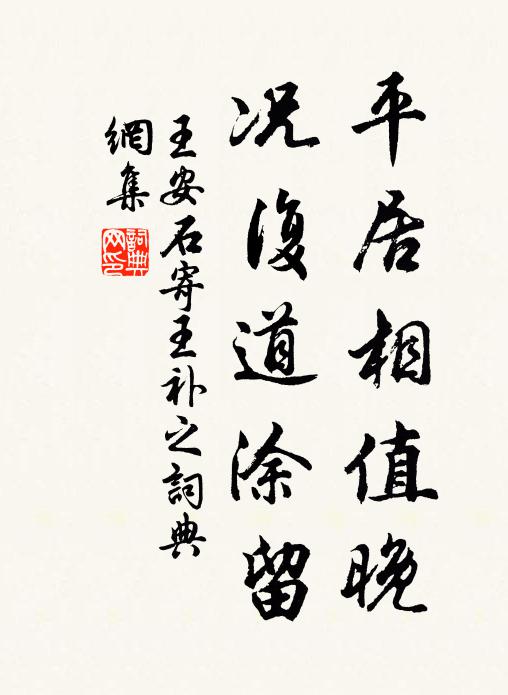 平居相值晚
况復道涂留
王安石寄王补之詞典
網集
詞典
网印